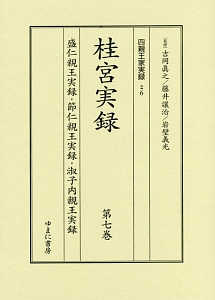 [監修]吉岡眞之/藤井讓治/岩壁義光
四親王家実録 26
桂宮実録
第七巻
盛仁親王実録・節仁親王実録・淑子内親王実録
ゆまに書房